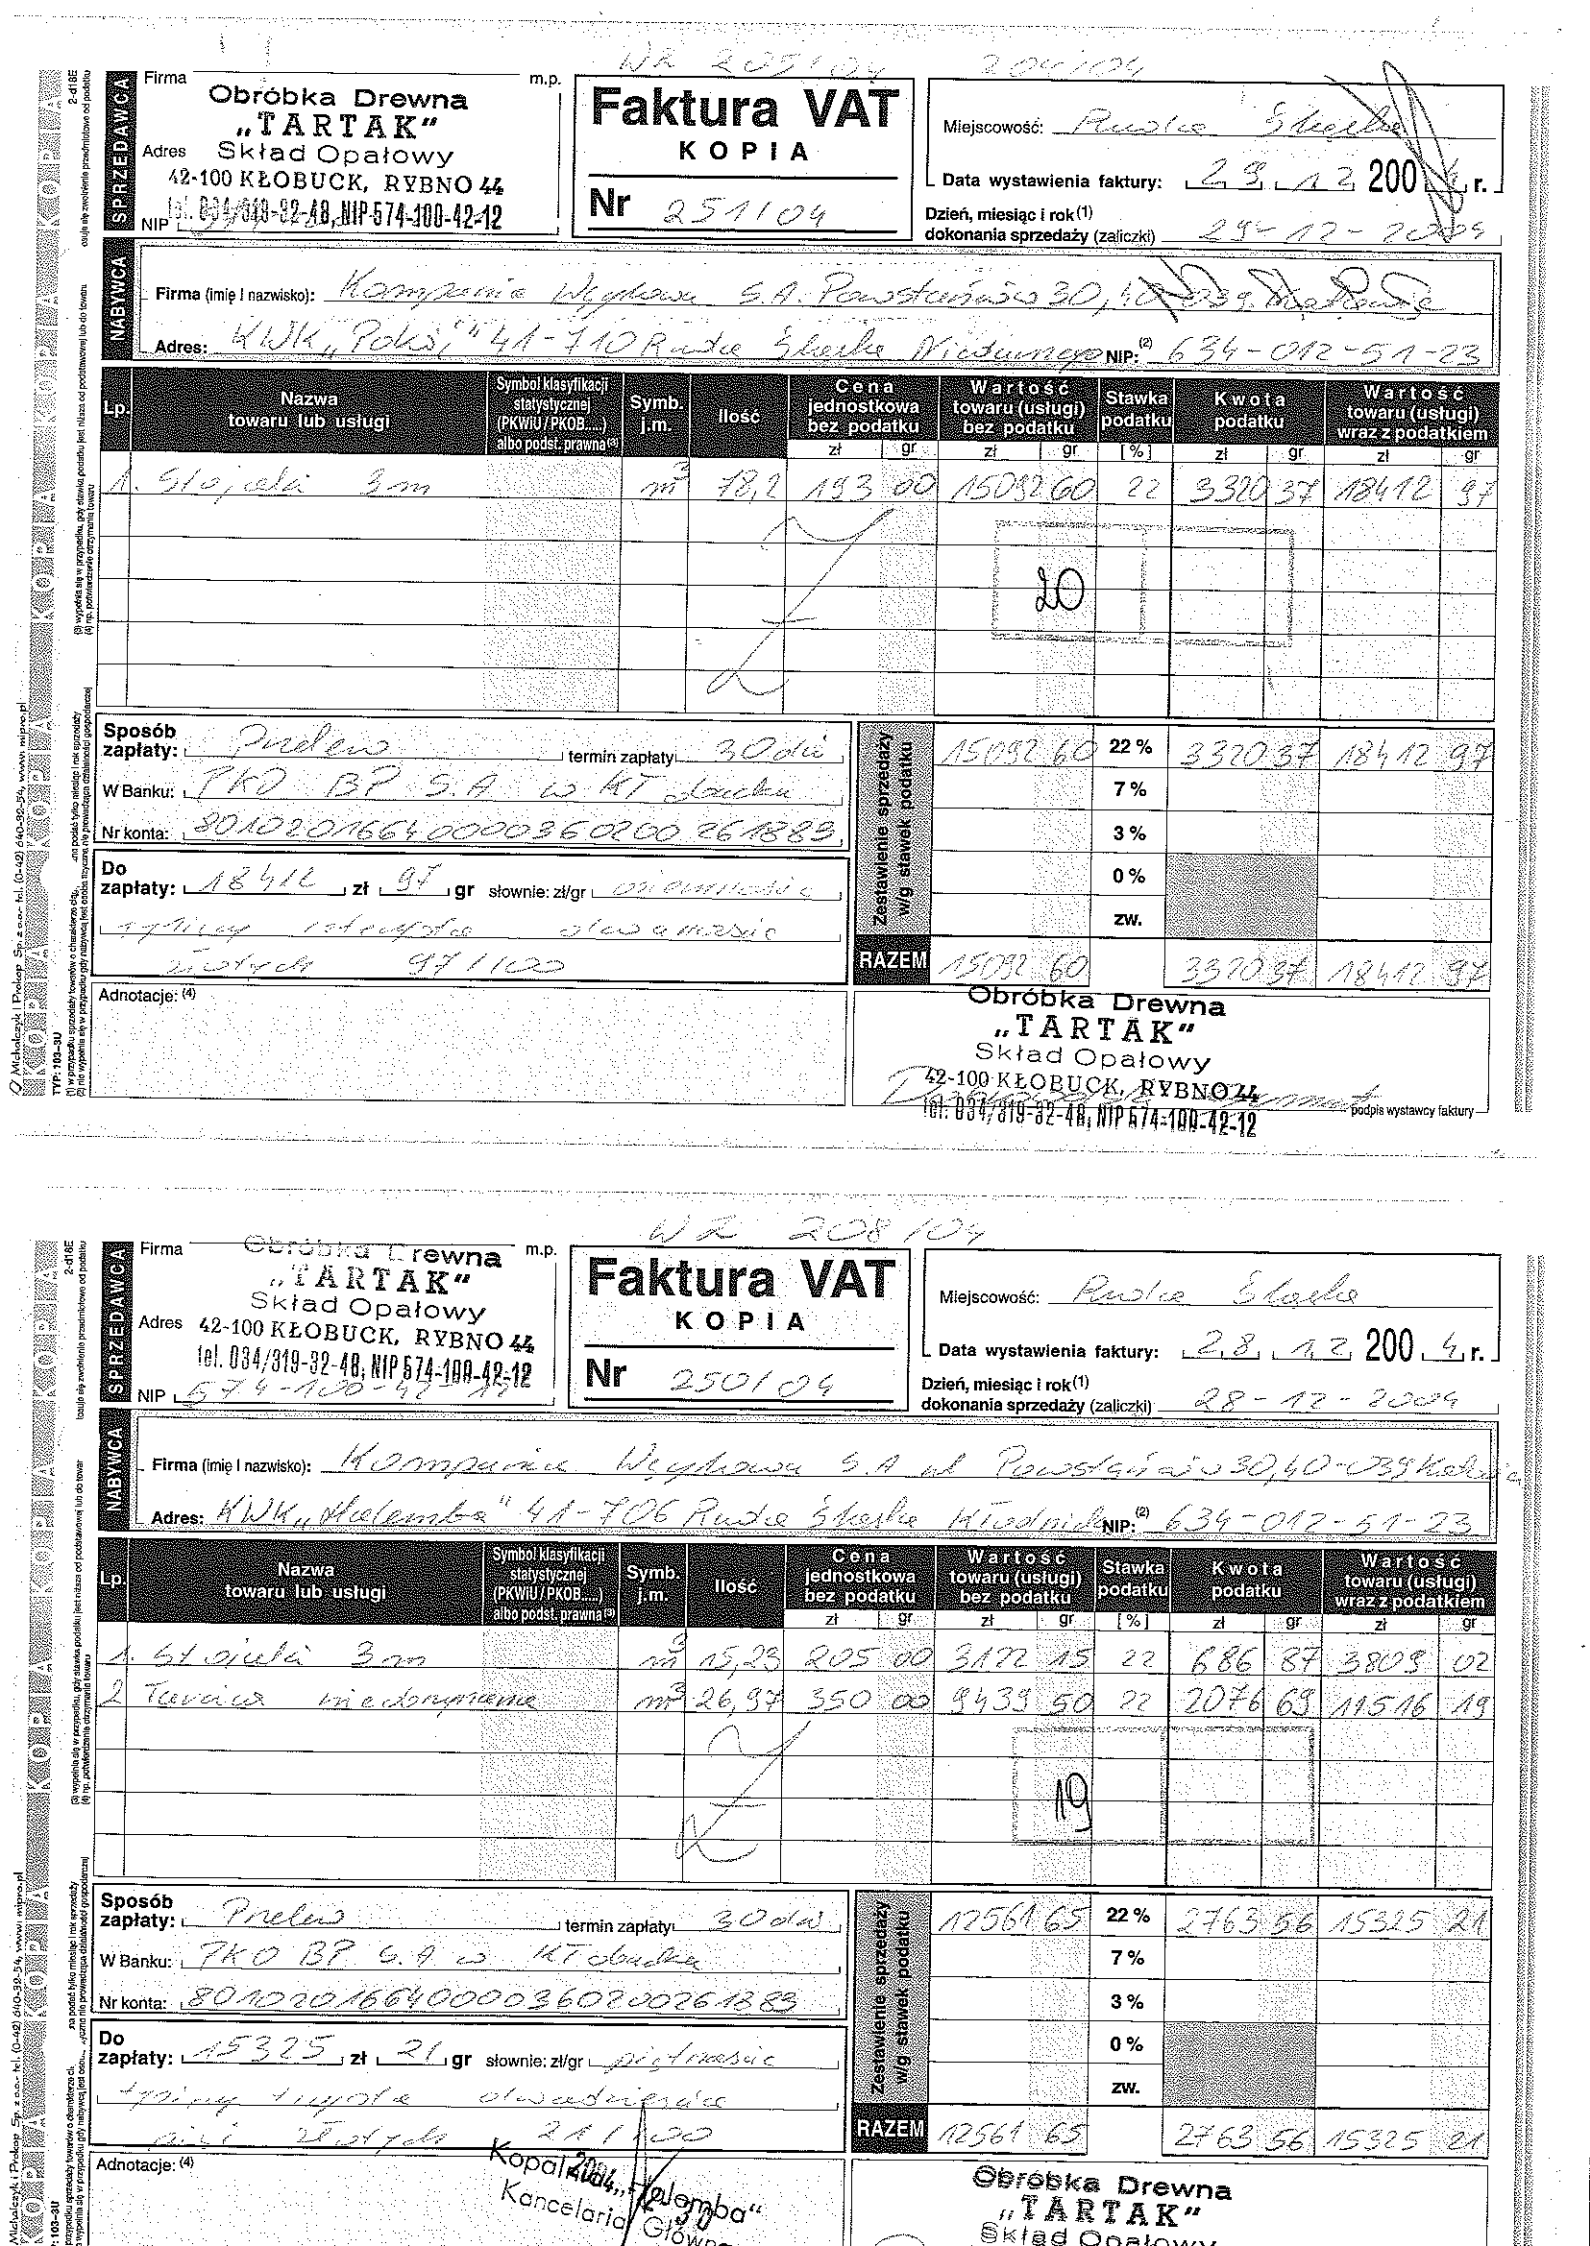 WZ 205/04 204/04
SPRZEDAWCA
Firma m.p.
Obróbka Drewna
„TARTAK"
Adres Skład Opałowy
42-100 KŁOBUCK, RYBNO 44
tel. 034/319-32-48, NIP 574-100-42-12
NIP
Faktura VAT
KOPIA
Nr 251/04
Miejscowość: Ruda Śląska
Data wystawienia faktury: 29.12.2004 r.
Dzień, miesiąc i rok(1)
dokonania sprzedaży (zaliczki) 29-12-2004
NABYWCA
Firma (imię i nazwisko): Kompania Węglowa S.A. Powstańców 30, 40-039 Katowice
Adres: KWK „Pokój" 41-710 Ruda Śląska Niedurnego NIP:(2) 634-012-51-23
Lp. Nazwa towaru lub usługi Symbol klasyfikacji statystycznej (PKWiU/PKOB.....) albo podst. prawna(3) Symb. j.m. Ilość Cena jednostkowa bez podatku Wartość towaru (usługi) bez podatku Stawka podatku Kwota podatku Wartość towaru (usługi) wraz z podatkiem
zł gr zł gr [%] zł gr zł gr
1. Stojaki 3m m3 78,2 193 00 15092 60 22 3320 37 18412 97
20
Sposób zapłaty: Przelew termin zapłaty 30 dni
W Banku: PKO BP S.A. w Kłobucku
Nr konta: 80102016640000360200261883
Do zapłaty: 18412 zł 97 gr słownie: zł/gr osiemnaście
tysięcy czterysta dwanaście
złotych 97/100
Zestawienie sprzedaży w/g stawek podatku
15092 60 22 % 3320 37 18412 97
7 %
3 %
0 %
zw.
RAZEM 15092 60 3320 37 18412 97
Adnotacje: (4)
Obróbka Drewna
„TARTAK"
Skład Opałowy
42-100 KŁOBUCK, RYBNO 44
tel. 034/319-32-48, NIP 574-100-42-12
podpis wystawcy faktury
KOPIA KOPIA KOPIA KOPIA
TYP: 103-3U
2-d18E
WZ 208/04
SPRZEDAWCA
Firma m.p.
Obróbka Drewna
„TARTAK"
Skład Opałowy
Adres 42-100 KŁOBUCK, RYBNO 44
tel. 034/319-32-48, NIP 574-100-42-12
NIP 574-100-42-12
Faktura VAT
KOPIA
Nr 250/04
Miejscowość: Ruda Śląska
Data wystawienia faktury: 28.12.2004 r.
Dzień, miesiąc i rok(1)
dokonania sprzedaży (zaliczki) 28-12-2004
NABYWCA
Firma (imię i nazwisko): Kompania Węglowa S.A ul Powstańców 30, 40-039 Katowice
Adres: KWK „Halemba" 41-706 Ruda Śląska Kłodnicka NIP:(2) 634-012-51-23
Lp. Nazwa towaru lub usługi Symbol klasyfikacji statystycznej (PKWiU/PKOB.....) albo podst. prawna(3) Symb. j.m. Ilość Cena jednostkowa bez podatku Wartość towaru (usługi) bez podatku Stawka podatku Kwota podatku Wartość towaru (usługi) wraz z podatkiem
zł gr zł gr [%] zł gr zł gr
1. Stojaki 3m m3 15,23 205 00 3122 15 22 686 87 3809 02
2 Tarcica nieobrzynana m3 26,97 350 00 9439 50 22 2076 69 11516 19
19
Sposób zapłaty: Przelew termin zapłaty 30 dni
W Banku: PKO BP S.A w Kłobucku
Nr konta: 80102016640000360200261883
Do zapłaty: 15325 zł 21 gr słownie: zł/gr piętnaście
tysięcy trzysta dwadzieścia
pięć złotych 21/100
Zestawienie sprzedaży w/g stawek podatku
12561 65 22 % 2763 56 15325 21
7 %
3 %
0 %
zw.
RAZEM 12561 65 2763 56 15325 21
Adnotacje: (4)
Kopalnia „Halemba"
Kancelaria Główna
Obróbka Drewna
„TARTAK"
Skład Opałowy